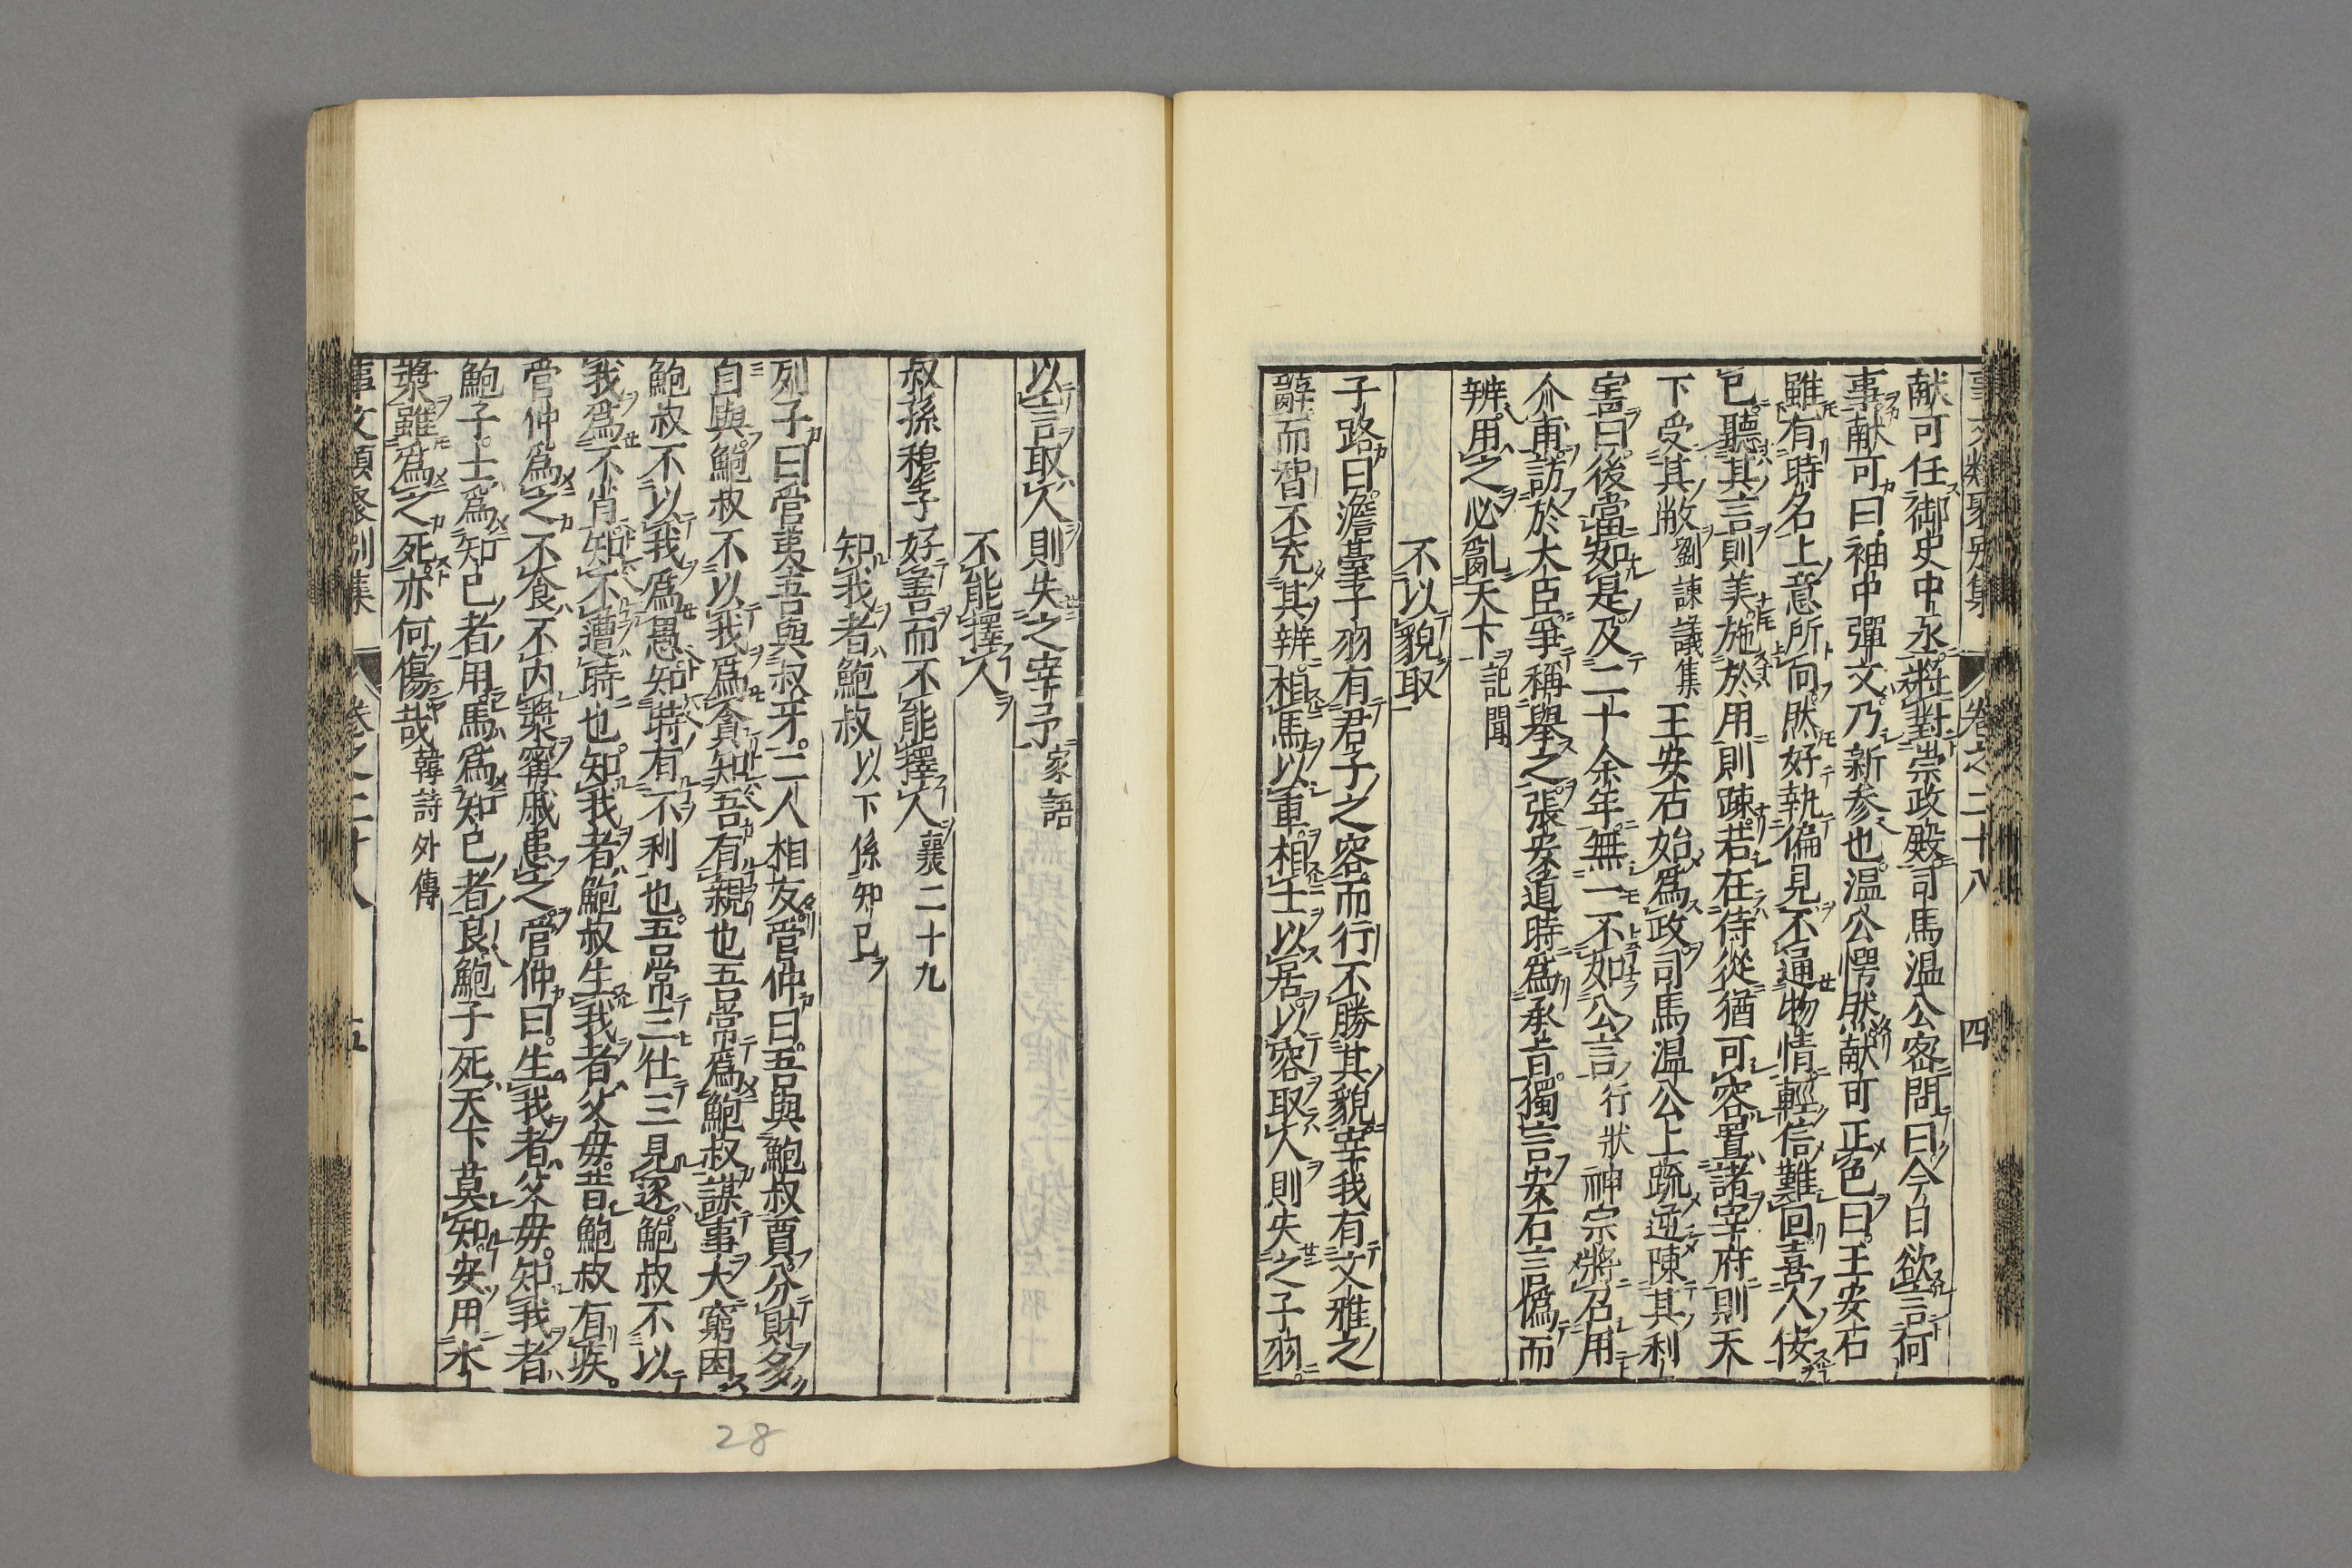 事文類聚別集 卷之二十八 四
献可任御史中丞將對崇政殿司馬温公密問曰今日欲言何
事献可曰袖中彈文乃新参也温公愕然献可正色曰王安石
雖有時名上意所向然好執偏見不通物情輕信難回喜人佞
已聽其言則美施於用則疎若在侍從猶可容置諸宰府則天
下受其敝劉諫議集 王安石始爲政司馬温公上疏逆陳其利
害曰後當如是及二十余年無一不如公言行狀神宗將召用
介甫訪於大臣爭稱舉之張安道時爲承旨獨言安石言僞而
辨用之必亂天下記聞
不以貌取
子路曰澹臺子羽有君子之容而行不勝其貌宰我有文雅之
辭而智不充其辨相馬以車相士以居以容取人則失之子羽
以言取人則失之宰予家語
不能擇人
叔孫穆子好善而不能擇人襄二十九
知我者鮑叔以下係知已
列子曰管夷吾與叔牙二人相友管仲曰吾與鮑叔賈分財多
自與鮑叔不以我爲貪知吾有親也吾常爲鮑叔謀事大窮困
鮑叔不以我爲愚知時有不利也吾常三仕三見逐鮑叔不以
我爲不肖知不遭時也知我者鮑叔生我者父母昔鮑叔有疾
管仲爲之不食不内漿寗戚患之管仲曰生我者父母知我者
鮑子士爲知已者用馬爲知已者良鮑子死天下莫知安用水
漿雖爲之死亦何傷哉韓詩外傳
事文類聚別集 卷之二十八 五
28